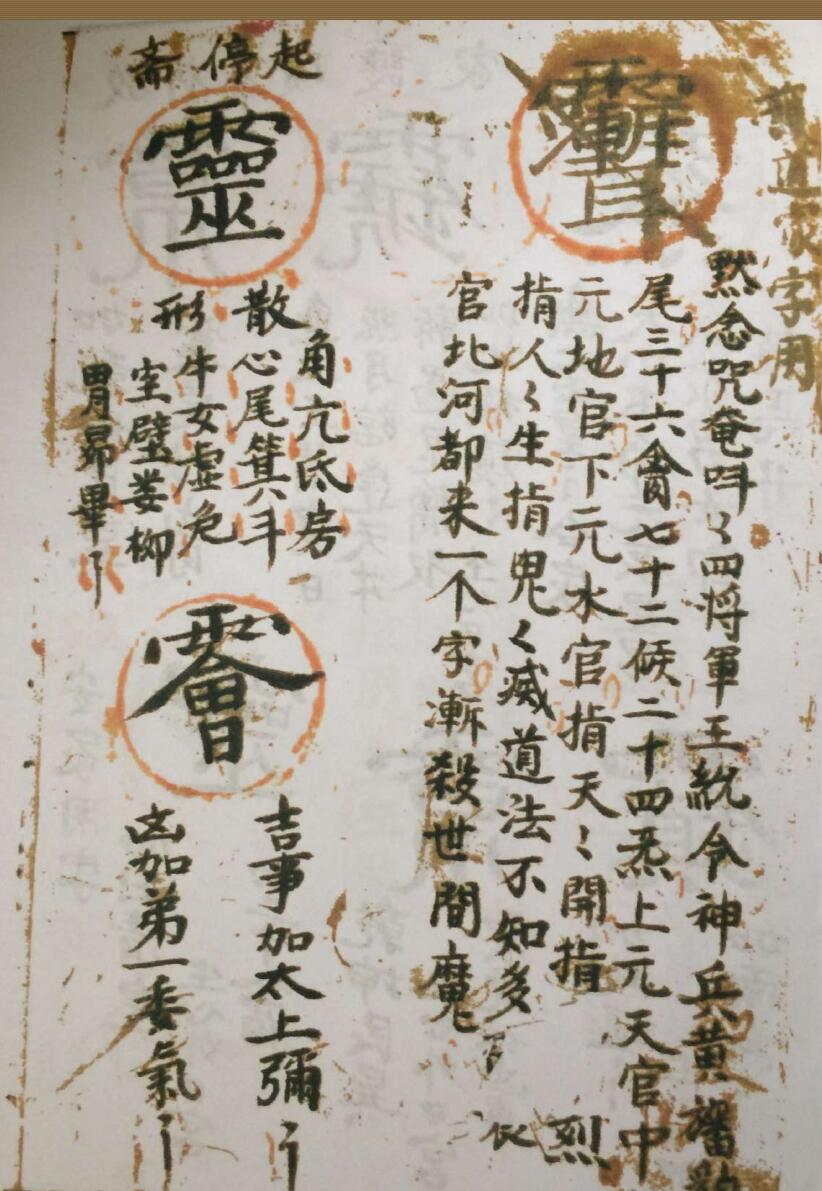 字用
默念咒奄吽〻四将軍王統令神兵黄旛
尾三十六禽七十二候二十四炁上元天官中
元地官下元水官指天〻開指
指人〻生指鬼〻滅道法不知多
官北河都来一个字漸殺世間魔
烈
化
起停斋
靈
角亢氐房
散心尾箕六斗
形牛女虚危
室壁娄柳
胃昴畢
吉事加太上彌
凶加第一委氣